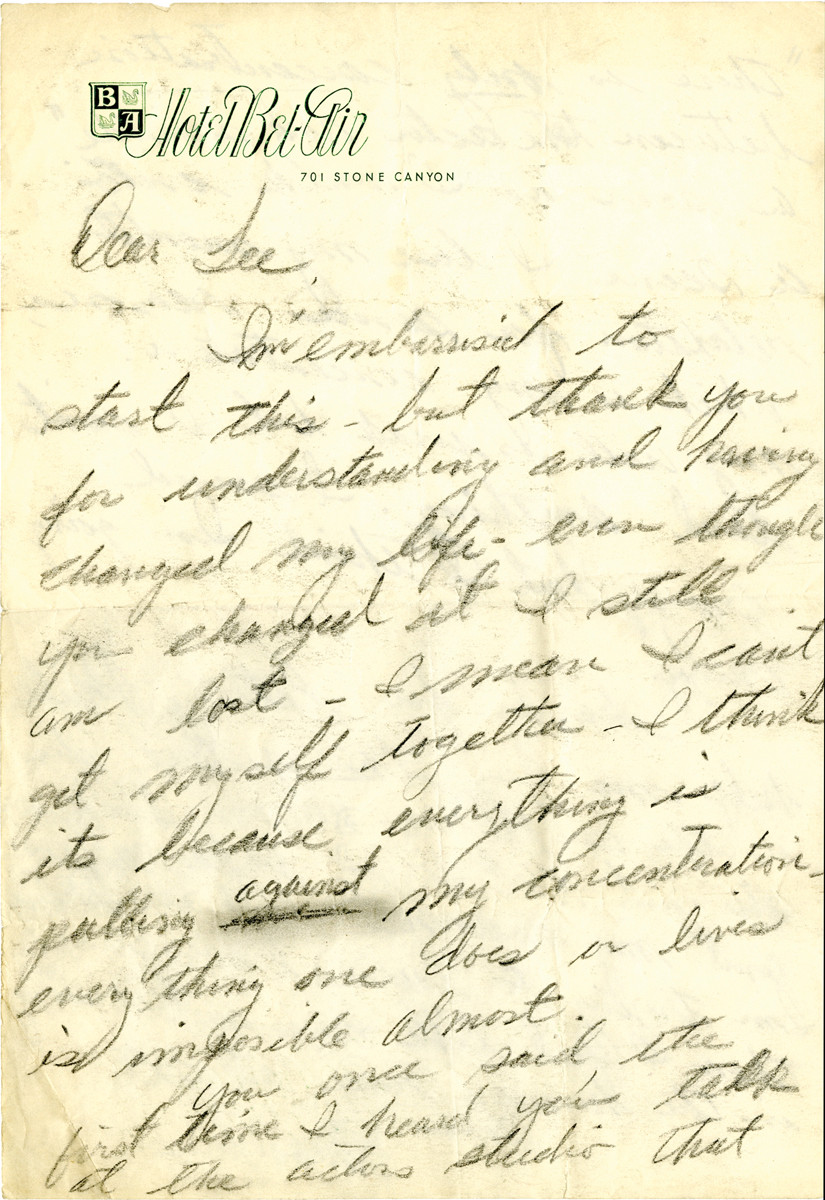 BA
Hotel Bel-Air
701 STONE CANYON
Dear Lee,
I'm embarrisid to
start this - but thank you
for understanding and having
changed my life - even though
you changed it I still
am lost - I mean I can't
get myself together - I think
its because everything is
pulling against my concentration -
every thing one does or lives
is impossible almost.
You once said the
first time I heard you talk
at the actors studio that